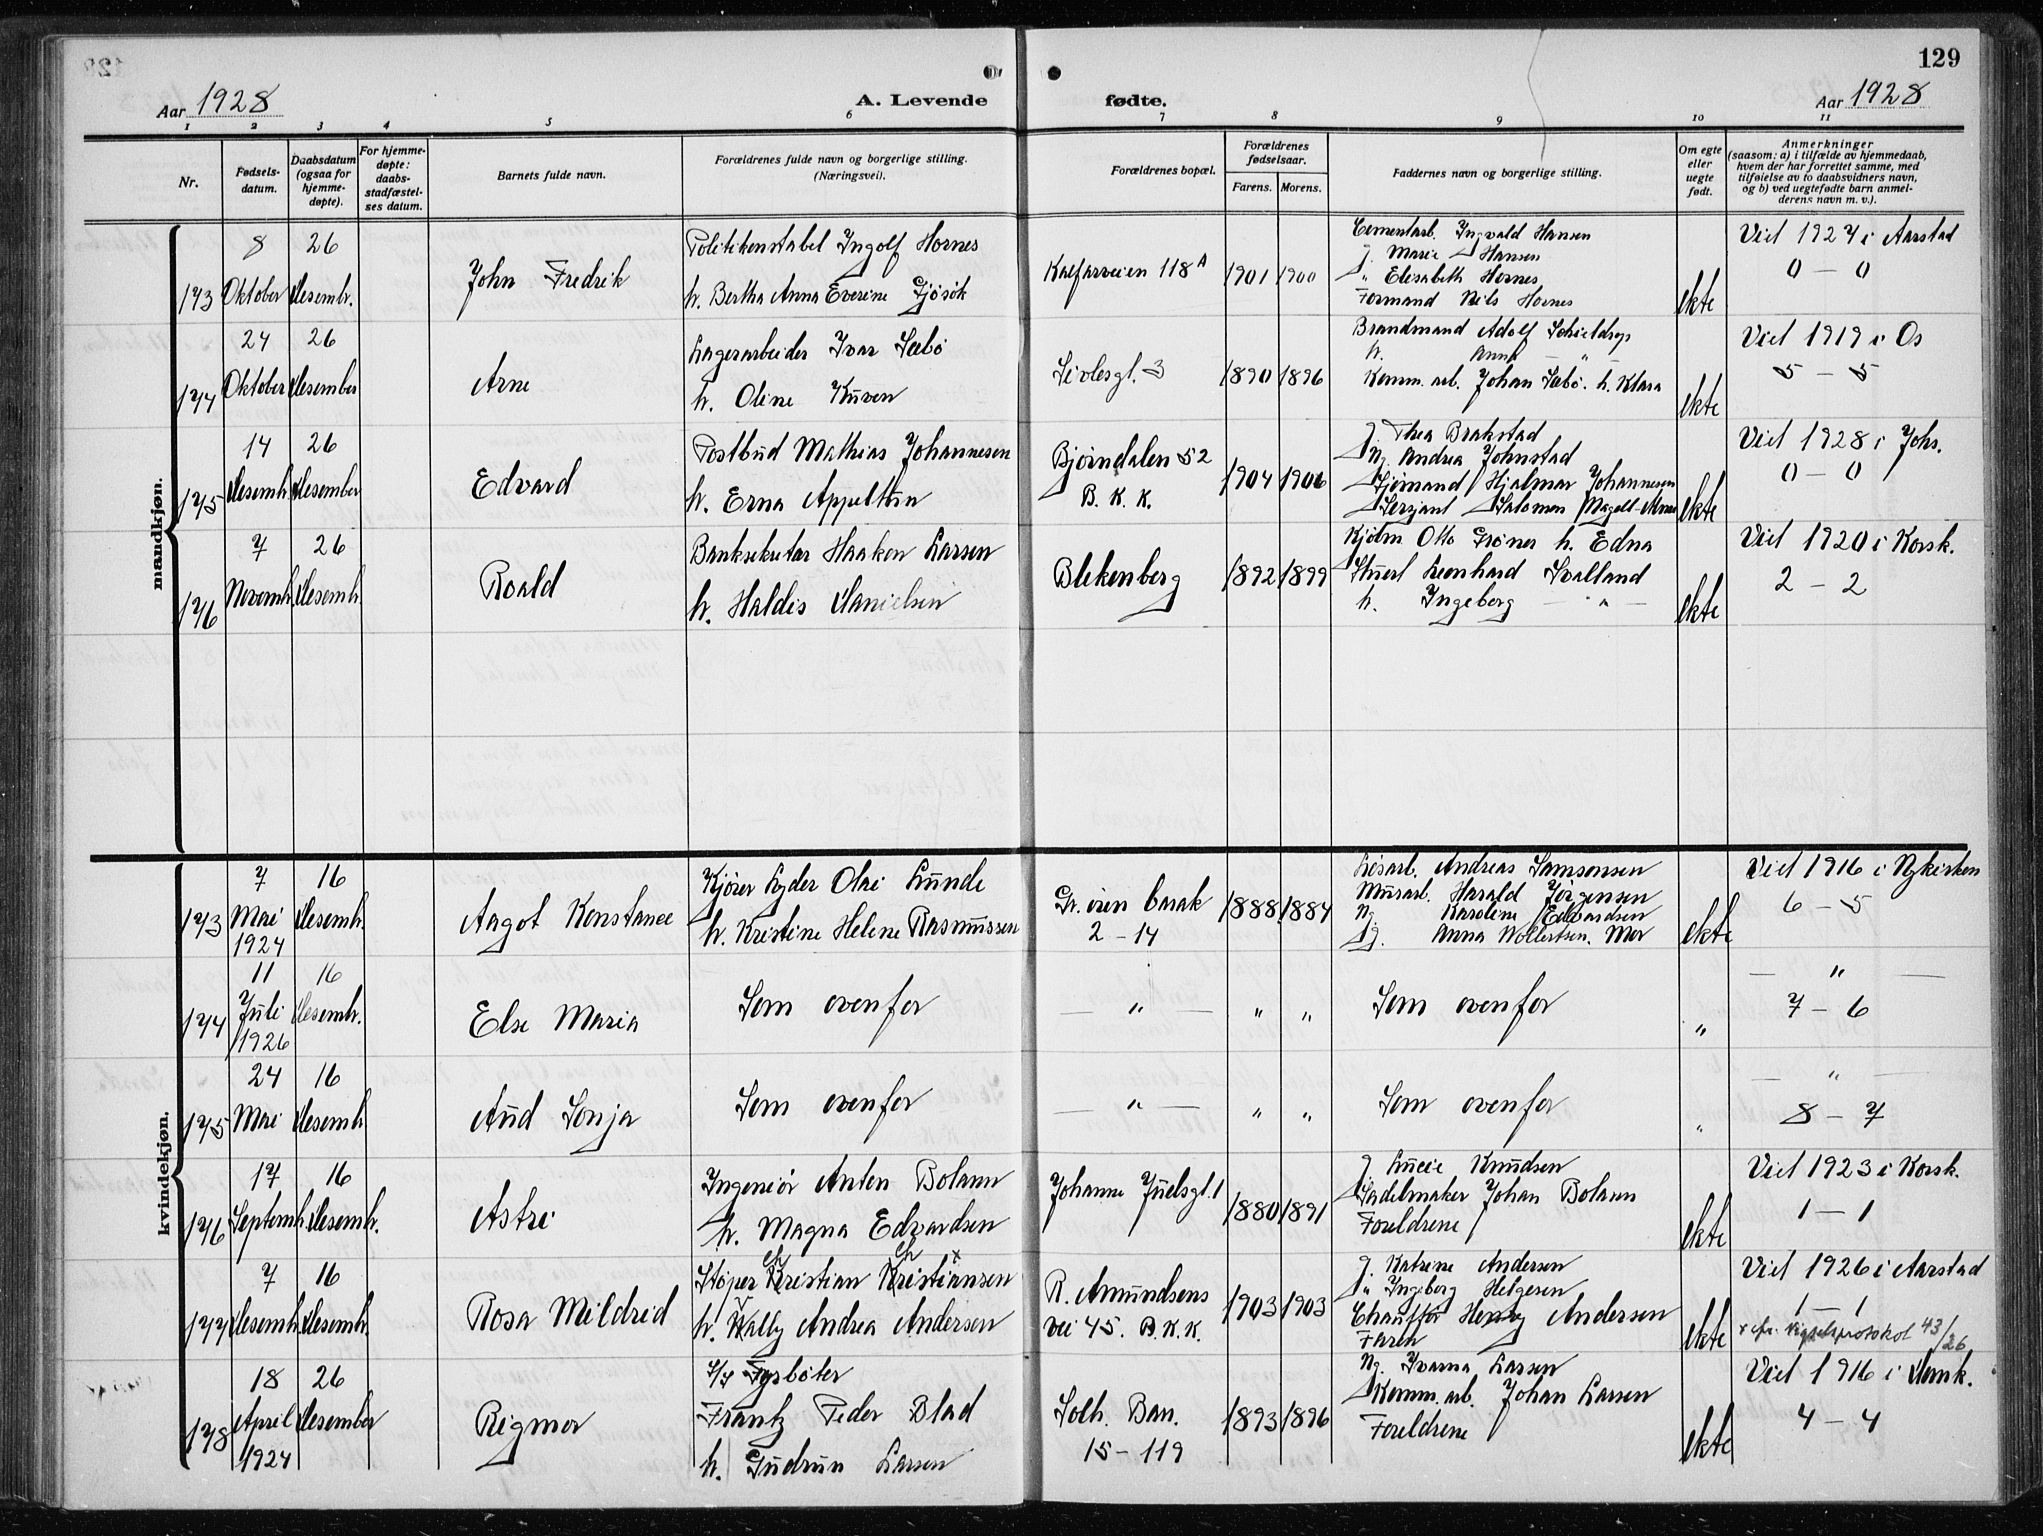 129
Aar 1928
A. Levende fødte.
Aar 1928
1 2 3 4 5 6 7 8 9 10 11
Nr.
Fødsels-
datum.
Daabsdatum
(ogsaa for
hjemme-
døpte).
For hjemme-
døpte:
daabs-
stadfæstel-
ses datum.
Barnets fulde navn.
Forældrenes fulde navn og borgerlige stilling.
(Næringsvei).
Forældrenes bopæl.
Forældrenes
fødselsaar.
Farens. Morens.
Faddernes navn og borgerlige stilling.
Om egte
eller
uegte
født.
Anmerkninger
(saasom: a) i tilfælde av hjemmedaab,
hvem der har forrettet samme, med
tilføielse av to daabsvidners navn,
og b) ved uegtefødte barn anmel-
derens navn m. v.).
mandkjøn.
173
8
Oktober
26
Desembr.
John Fredrik
Politikonstabel Ingolf Hornes
h. Bertha Anna Everine Gjøsøk
Kalfarveien 118A
1901 1900
Cementarb. Ingvald Hansen
g. Marie Hansen
" Elisabeth Hornes
Formand Nils Hornes
ekte
Viet 1927 i Aarstad
0 — 0
174
24
Oktober
26
Desember
Arne
Lagerarbeider Ivar Sæbø
h. Oline Kuven
Sivlesgt. 3
1890 1896
Brandmand Adolf
h. Anna — " —
Komm. arb. Johan Sæbø. h. Klara
ekte
Viet 1919 i Os
5 — 5
175
14
Desemb.
26
Desember
Edvard
Postbud Mathias Johannesen
h. Erna Appelthun
Bjørndalen 52
B. K. K.
1904 1906
g. Thea Brakstad
Ug. Andrea Johnstad
Sjømand Hjalmar Johannesen
Sersjant Salomon
ekte
Viet 1928 i Johs.
0 — 0
176
7
Novemb.
26
Desemb.
Roald
Banksekretær Haakon Larsen
h. Haldis Danielsen
Blekenberg
1892 1899
Kjøbm Otto Grøner h. Edna
Stuert Leonhard Svalland
h. Ingeborg — " —
ekte
Viet 1920 i Korsk.
2 — 2
kvindekjøn.
173
7
Mai
1924
16
Desemb.
Aagot Konstance
Kjører Lyder Olai Lunde
h. Kristine Helene Rasmussen
Gr. veien barak
2 - 14
1888 1884
Løsarb. Andreas Samsonsen
Murarb. Harald Jørgensen
Ug. Karoline Edvardsen
g. Anna Wollertsen. Mor
ekte
Viet 1916 i Nykirken
6 — 5
174
11
Juli
1926
16
Desemb.
Else Maria
Som ovenfor
— " —
" "
Som ovenfor
"
— " —
7 — 6
175
24
Mai
16
Desemb
Aud Sonja
Som ovenfor
— " —
" "
Som ovenfor
"
— " —
8 — 7
176
17
Septemb.
16
Desemb.
Astri
Ingeniør Anton Bolann
h. Magna Edvardsen
Johanne Juelsgt. 1
1880 1891
g. Lucie Knudsen
Sadelmaker Johan Bolann
Foreldrene
ekte
Viet 1923 i Korsk.
1 — 1
177
7
Desemb.
16
Desemb.
Rosa Mildred
Ch Ch x
Støper Kristian Kristiansen
h. Wally Andrea Andersen
R. Amundsens
vei 45. B.K.K.
1903 1903
g. Katrine Andersen
g. Ingeborg Helgesen
Chauffør Henry Andersen
Faren
ekte
Viet 1926 i Aarstad
1 — 1
x cfr. Vigselsprotokol 43/26
178
18
April
1924
26
Desember
Rigmor
Fyrbøter
Frantz Peder Blad
h. Gudrun Larsen
Solh. Bar.
15 - 119
1893 1896
Ug. Ivarna Larsen
Komm. arb. Johan Larsen
Foreldrene
ekte
Viet 1916 i Domk.
4 — 4